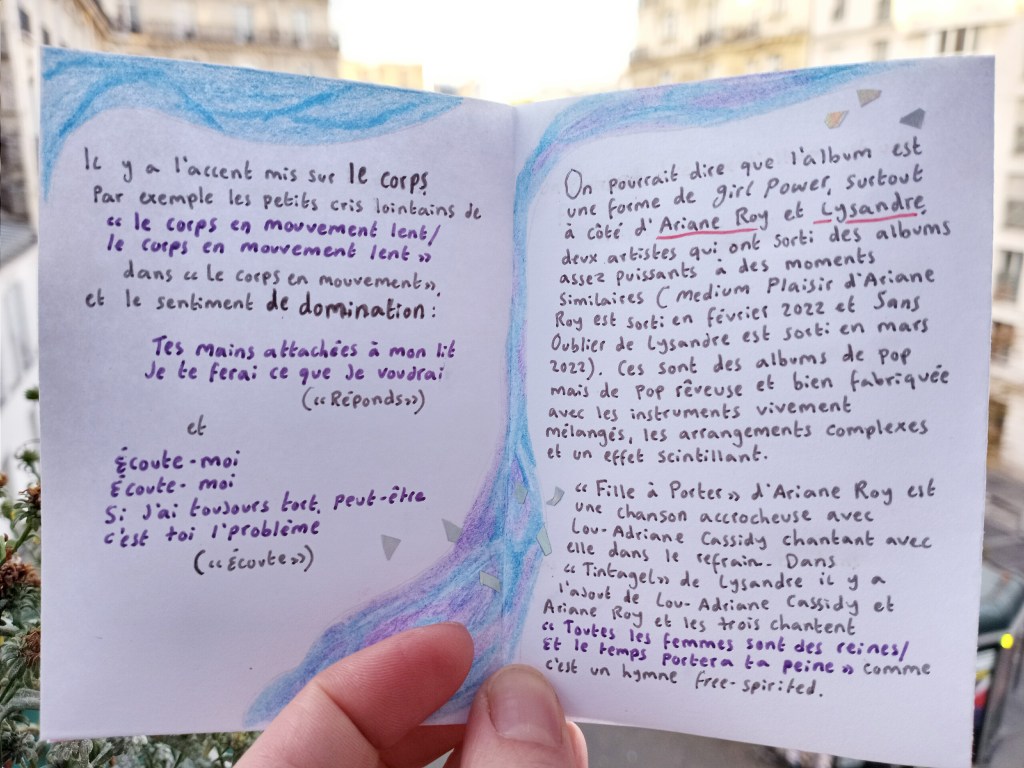 Il y a l'accent mis sur le corps.
Par exemple les petits cris lointains de
« le corps en mouvement lent/
le corps en mouvement lent »
dans « Le corps en mouvement »,
et le sentiment de domination :
Tes mains attachées à mon lit
Je te ferai ce que je voudrai
(« Réponds »)
et
Écoute-moi
Écoute-moi
Si j'ai toujours tort, peut-être
c'est toi l'problème
(« Écoute »)
On pourrait dire que l'album est
une forme de girl power, surtout
à côté d'Ariane Roy et Lysandre,
deux artistes qui ont sorti des albums
assez puissants à des moments
similaires (Medium Plaisir d'Ariane
Roy est sorti en février 2022 et Sans
Oublier de Lysandre est sorti en mars
2022). Ces sont des albums de pop
mais de pop rêveuse et bien fabriquée
avec les instruments vivement
mélangés, les arrangements complexes
et un effet scintillant.
« Fille à Porter » d'Ariane Roy est
une chanson accrocheuse avec
Lou-Adriane Cassidy chantant avec
elle dans le refrain. Dans
« Tintagel » de Lysandre il y a
l'ajout de Lou-Adriane Cassidy et
Ariane Roy et les trois chantent
« Toutes les femmes sont des reines/
Et le temps portera ta peine » comme
c'est un hymne free-spirited.